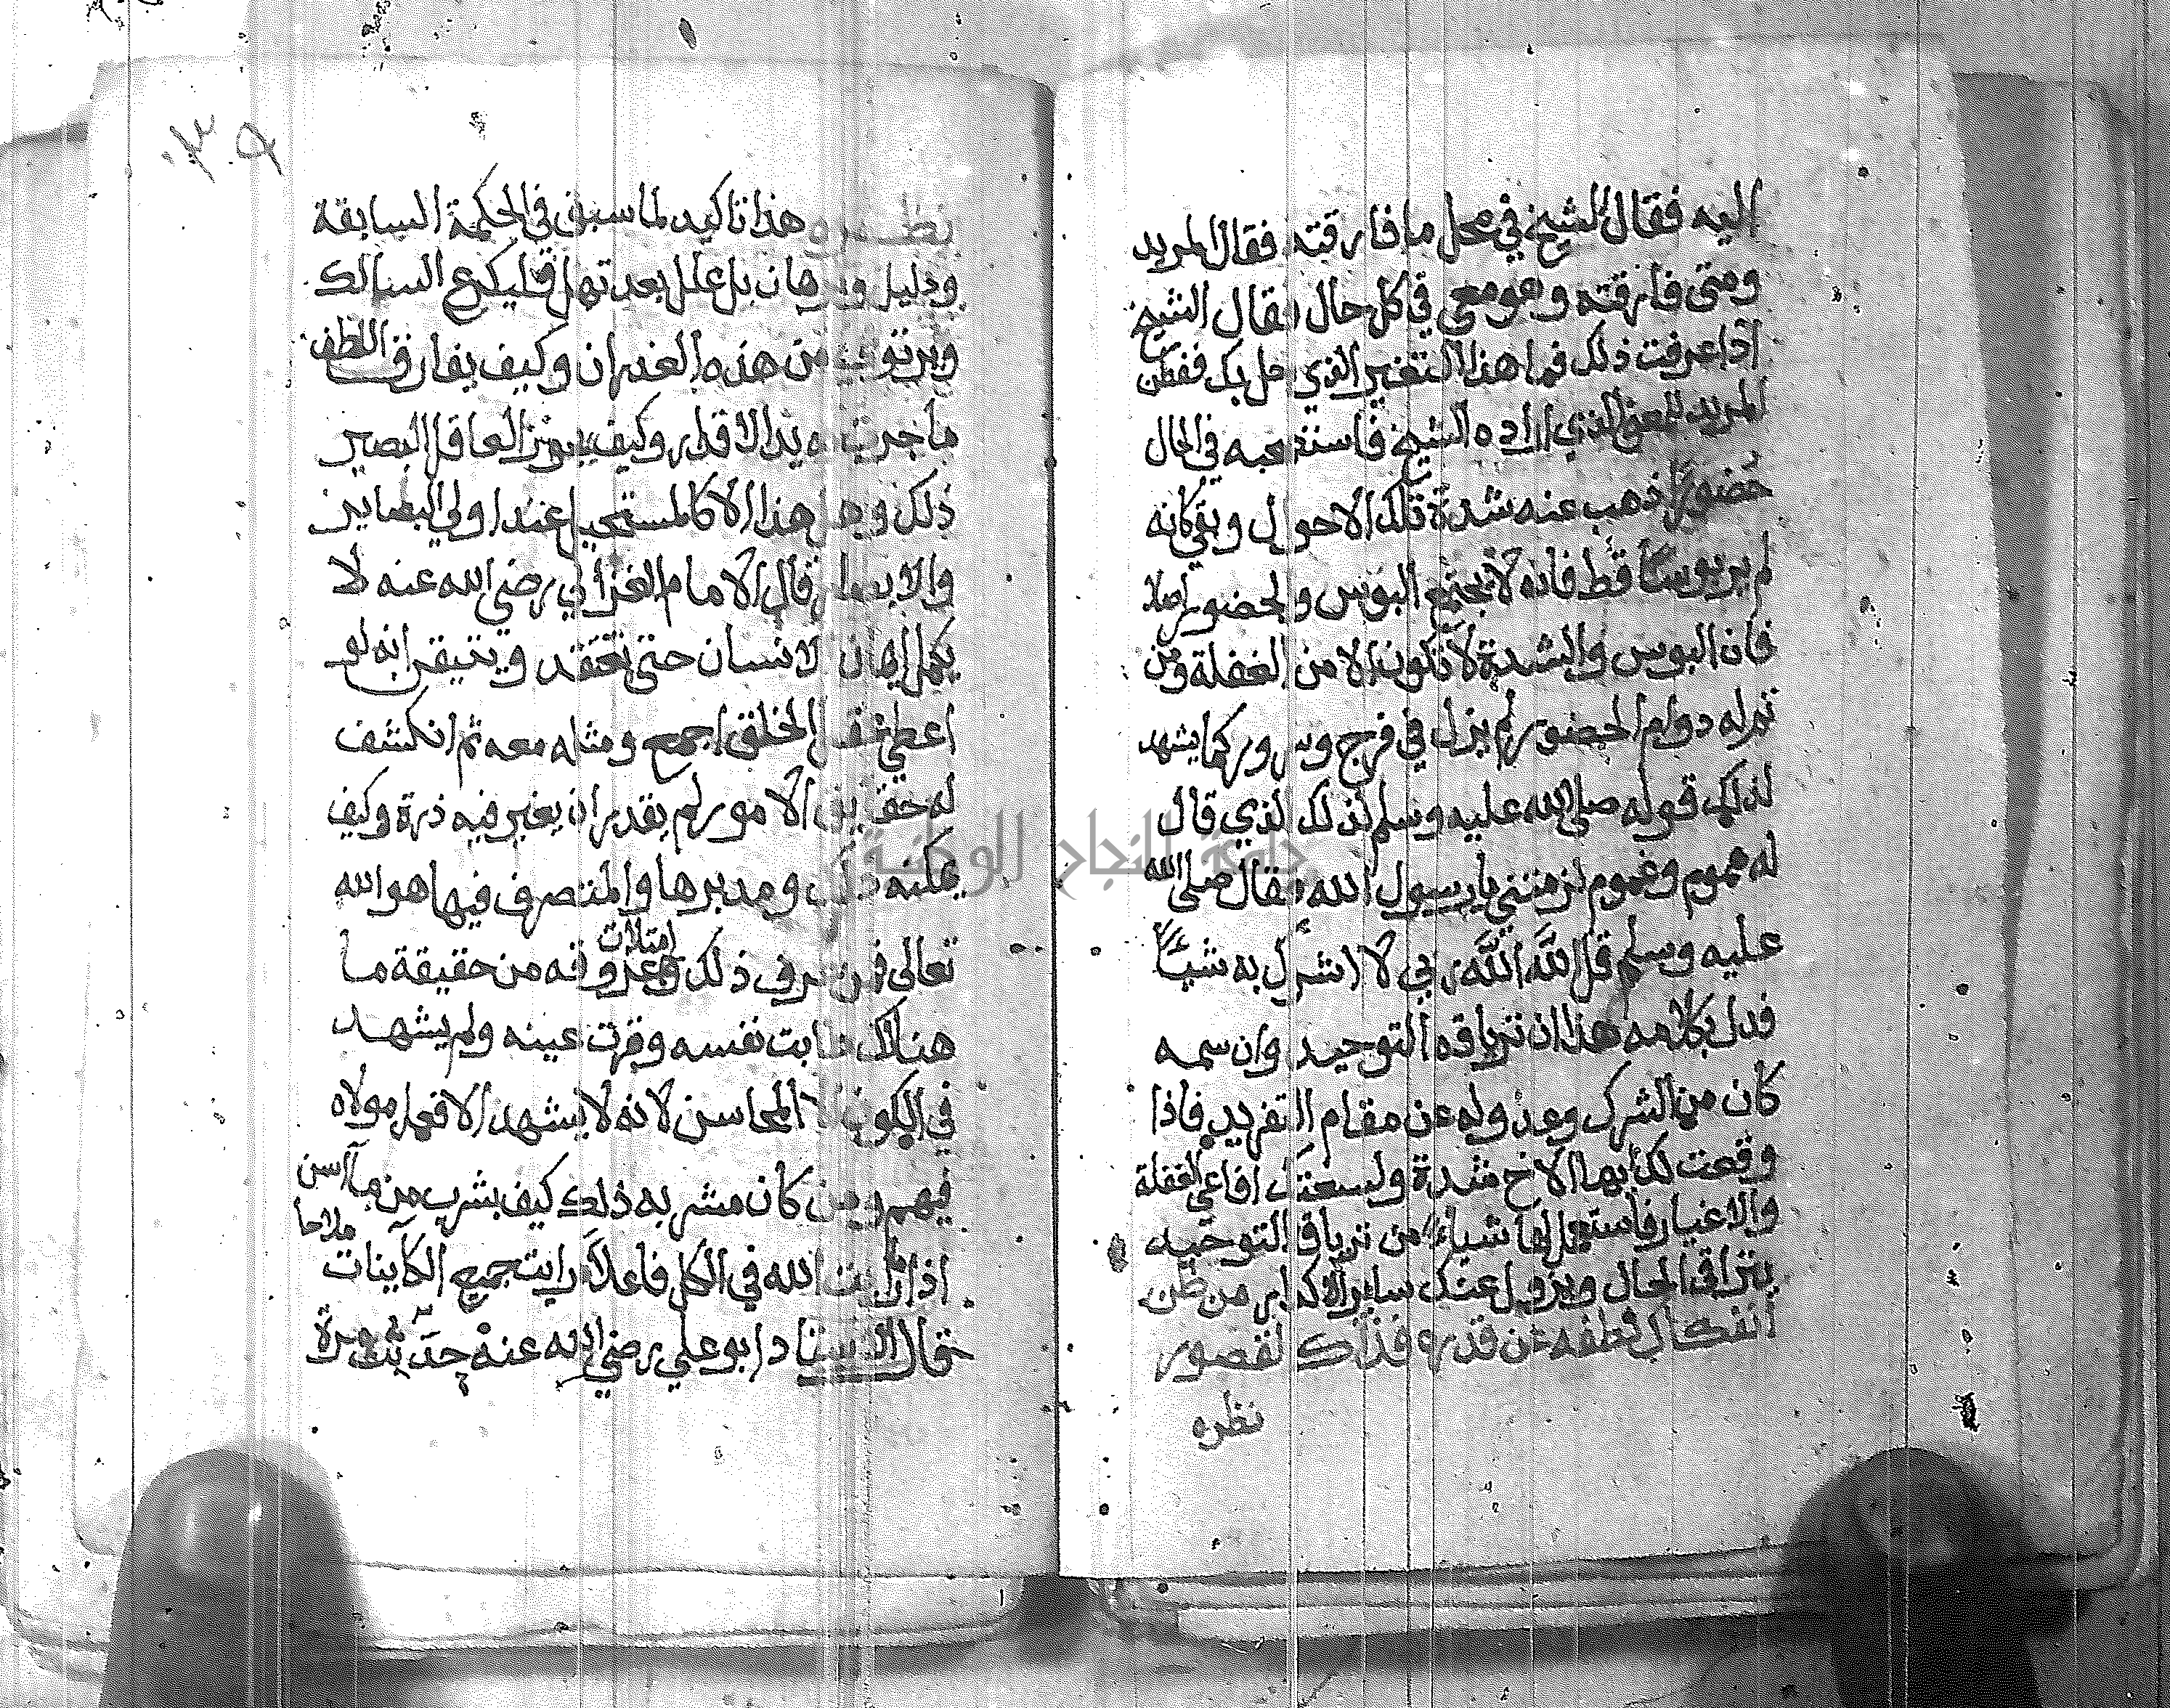 اليه فقال الشيخ في محل ما فارقته فقال المريد
ومتى فارقته وهو معي في كل حال فقال الشيخ
اذا عرفت ذلك فما هذا التغير الذي حل بك ففطن
المريد للمعنى الذي اراده الشيخ فاستعمه في الحال
حضورا ذهب عنه شدة تلك الاحوال وبقي كانه
لم ير بوسا قط فانه لا يجتمع البوس والحضور اصلا
فان البوس والشدة لا تكون الا من الغفلة ومن
تم له دوام الحضور لم يزل في فرج وسرور كما يشهد
لذلك قوله صلى الله عليه وسلم لذلك الذي قال
له هموم وغموم لزمتني يا رسول الله فقال صلى الله
عليه وسلم قل الله الله ربي لا اشرك به شيئا
فدل بكلامه هذا ان ترياقه التوحيد وان سمه
كان من الشرك وعدوله عن مقام التفريد فاذا
وقعت لك ايها الاخ شدة ولسعتك افاعي الغفلة
والاغيار فاستعمل لها شياء من ترياق التوحيد
يتراقى الحال ويزول عنك ساير الاكدار من ظن
انفكاك لطفه عن قدره فذلك لقصور
نظره
نظره وهذا تاكيد لما سبق في الحكمة السابقة
ودليل وبرهان بل علل بعد نهل فليكرع السالك
ويرتوي من هذه الغدران وكيف يفارق اللطف
ما جرت به يد الاقدار وكيف يجوز العاقل البصير
ذلك وهل هذا الا كالمستحيل عند اولي البصاير
والابصار قال الامام الغزالي رضي الله عنه لا
يكمل ايمان الانسان حتى يعتقد ويتيقن انه لو
اعطي عقل الخلق اجمع ومثله معه ثم انكشف
له حقايق الامور لم يقدر ان يغير فيه ذرة وكيف
يمكنه ذلك ومدبرها والمتصرف فيها هو الله
تعالى فمن عرف ذلك وامتلات عروقه من حقيقة ما
هنالك طابت نفسه وقرت عينه ولم يشهد
في الكون الا المحاسن لانه لا يشهد الا فعل مولاه
فيهم ومن كان مشربه ذلك كيف يشرب من ما آسن
ملاحا
اذا رايت الله في الكل فاعلا رايت جميع الكاينات
قال الاستاد ابو علي رضي الله عنه مرة